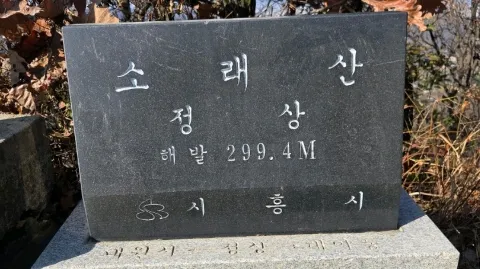 소래산
정상
해발 299.4M
시흥시